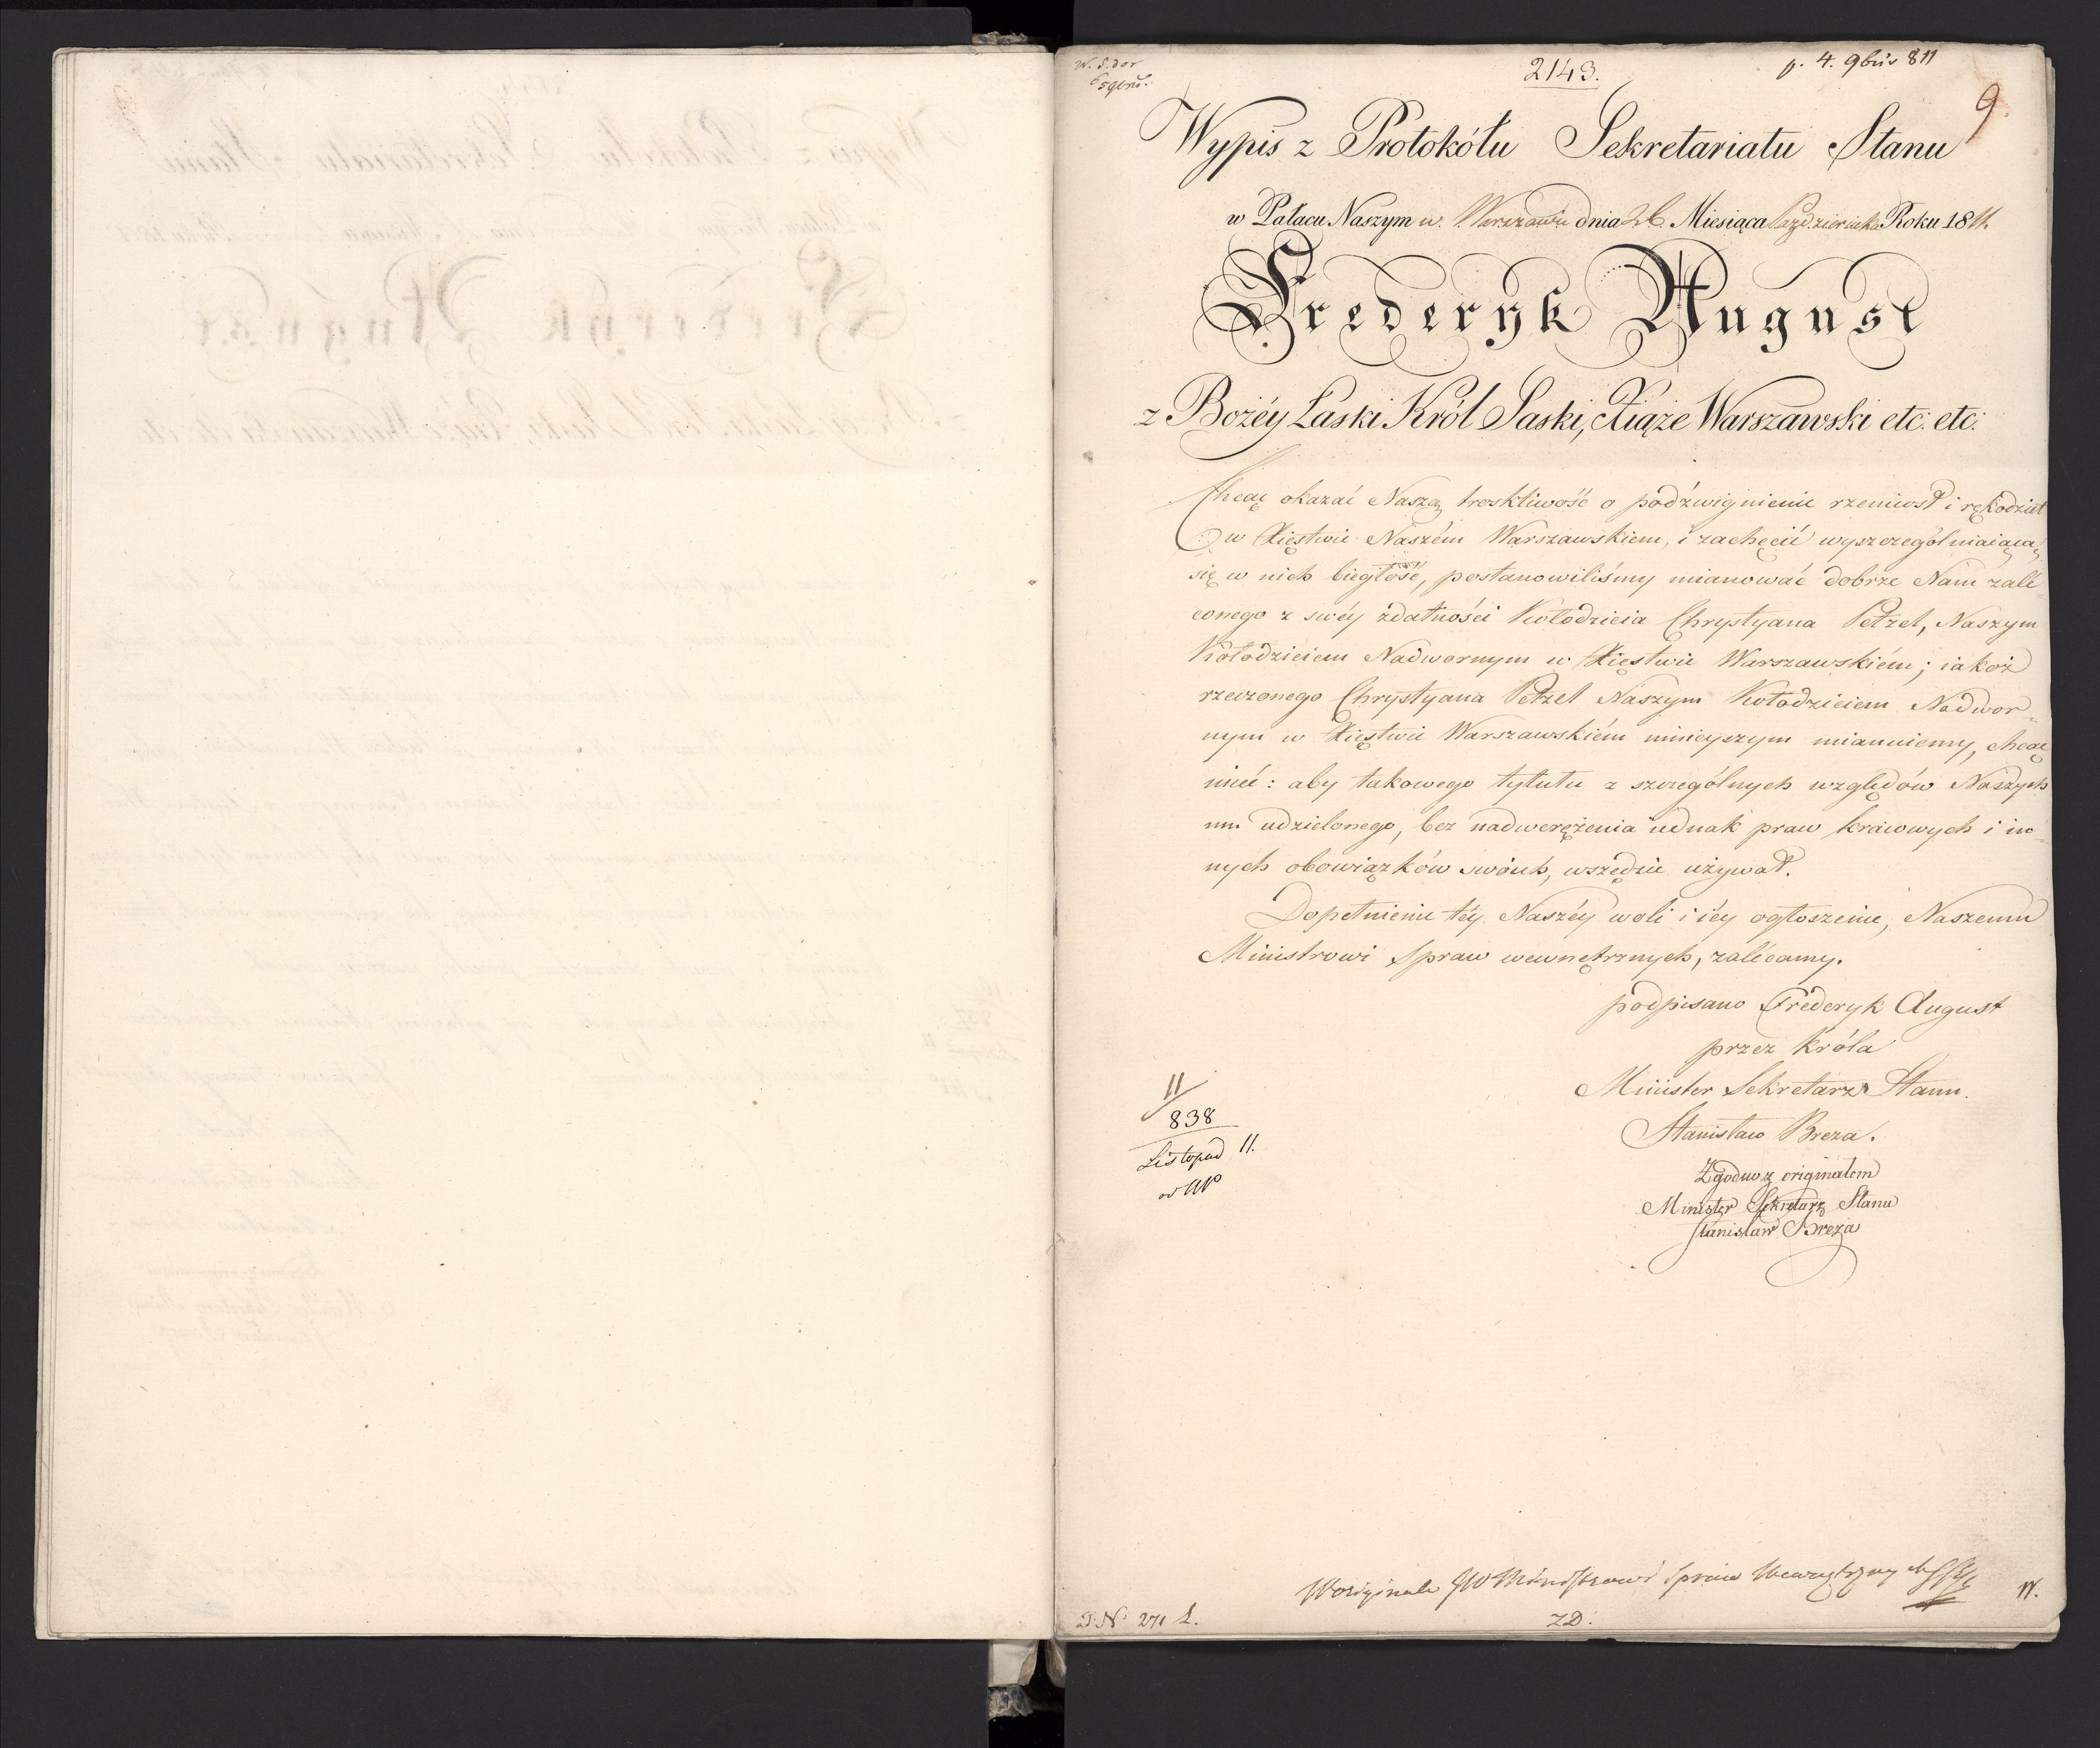 2143.
p. 4. 9bris 811
9
Wypis z Protokółu Sekretariatu Stanu
w Pałacu Naszym w. Warszawie dnia 26. Miesiąca Października Roku 1811.
Frederyk August
z Bożéy Łaski Król Saski, Xiąże Warszawski etc: etc:
Chcąc okazać Naszą troskliwość o podźwignienie rzemiosł i rękodzieł
w Xięstwie Naszém Warszawskiem, i zachęcić wyszczególniaiącą
się w nich biegłość, postanowiliśmy mianować dobrze Nam zale
conego z swéy zdatności Kołodzieia Chrystyana Petzel, Naszym
Kołodzieiem Nadwornym w Xięstwie Warszawskiém; iakoż
rzeczonego Chrystyana Petzel Naszym Kołodzieiem Nadwor=
nym w Xięstwie Warszawskiém ninieyszym mianuiemy, chcąc
mieć: aby takowego tytułu z szczególnych względów Naszych
mu udzielonego, bez nadwerężenia iednak praw kraiowych i in=
nych obowiązków swoich, wszędzie używał.
Dopełnienie téy Naszéy woli i iéy ogłoszenie, Naszemu
Ministrowi Spraw wewnętrznych, zalécamy.
podpisano Frederyk August
przez Króla
Minister Sekretarz Stanu.
Stanisław Breza.
Zgodno z originałem
Minister Sekretarz Stanu
Stanisław Breza
11/
838
Listopad 11.
W originale JW Ministrowi Spraw Wewnętrznych
D: N: 271 L.
ZD.